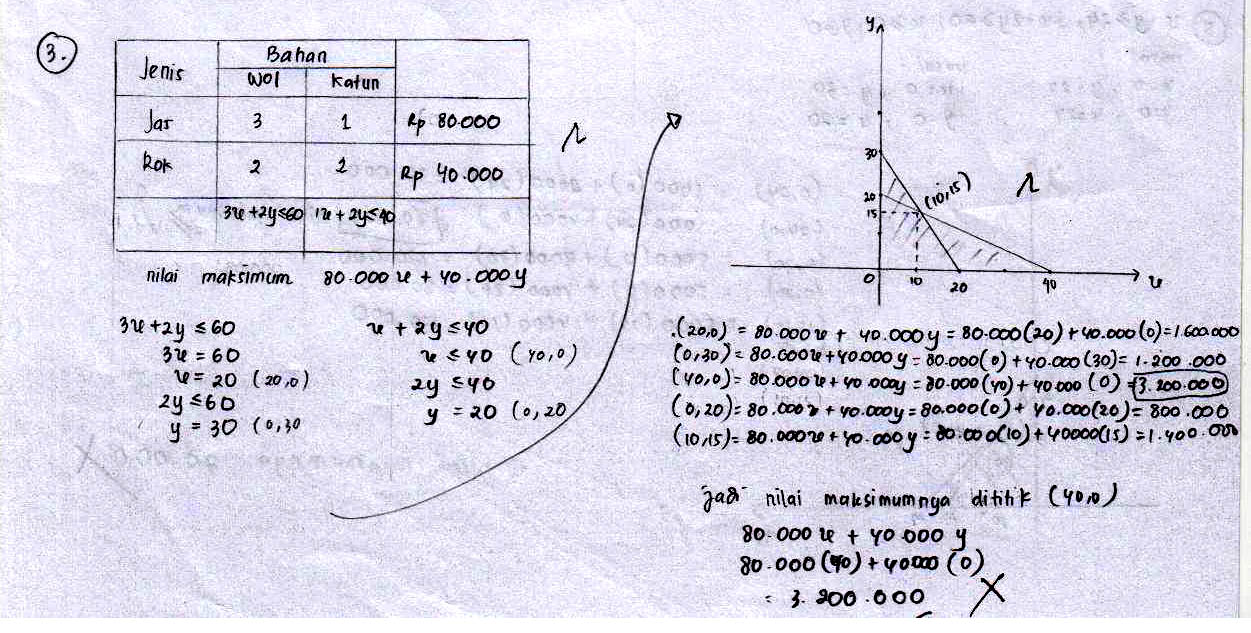 3.
Jenis Bahan
Wol Katun
Jas 3 1 Rp 80.000
Rok 2 2 Rp 40.000
3x+2y≤60 1x+2y≤40
nilai maksimum 80.000 x + 40.000 y
3x+2y ≤ 60
3x = 60
x = 20 (20,0)
2y ≤ 60
y = 30 (0,30
x + 2y ≤ 40
x ≤ 40 (40,0)
2y ≤ 40
y = 20 (0,20
y
30
20
15
(10,15)
0 10 20 40 x
(20,0) = 80.000x + 40.000y = 80.000(20) + 40.000(0) = 1.600.000
(0,30) = 80.000x+40.000y = 80.000(0) + 40.000(30) = 1.200.000
(40,0) = 80.000x+40.000y = 80.000(40) + 40.000(0) = 3.200.000
(0,20) = 80.000x + 40.000y = 80.000(0) + 40.000(20) = 800.000
(10,15) = 80.000x + 40.000y = 80.000(10) + 40000(15) = 1.400.000
Jadi nilai maksimumnya dititik (40,0)
80.000 x + 40.000 y
80.000 (40) + 40000 (0)
= 3.200.000